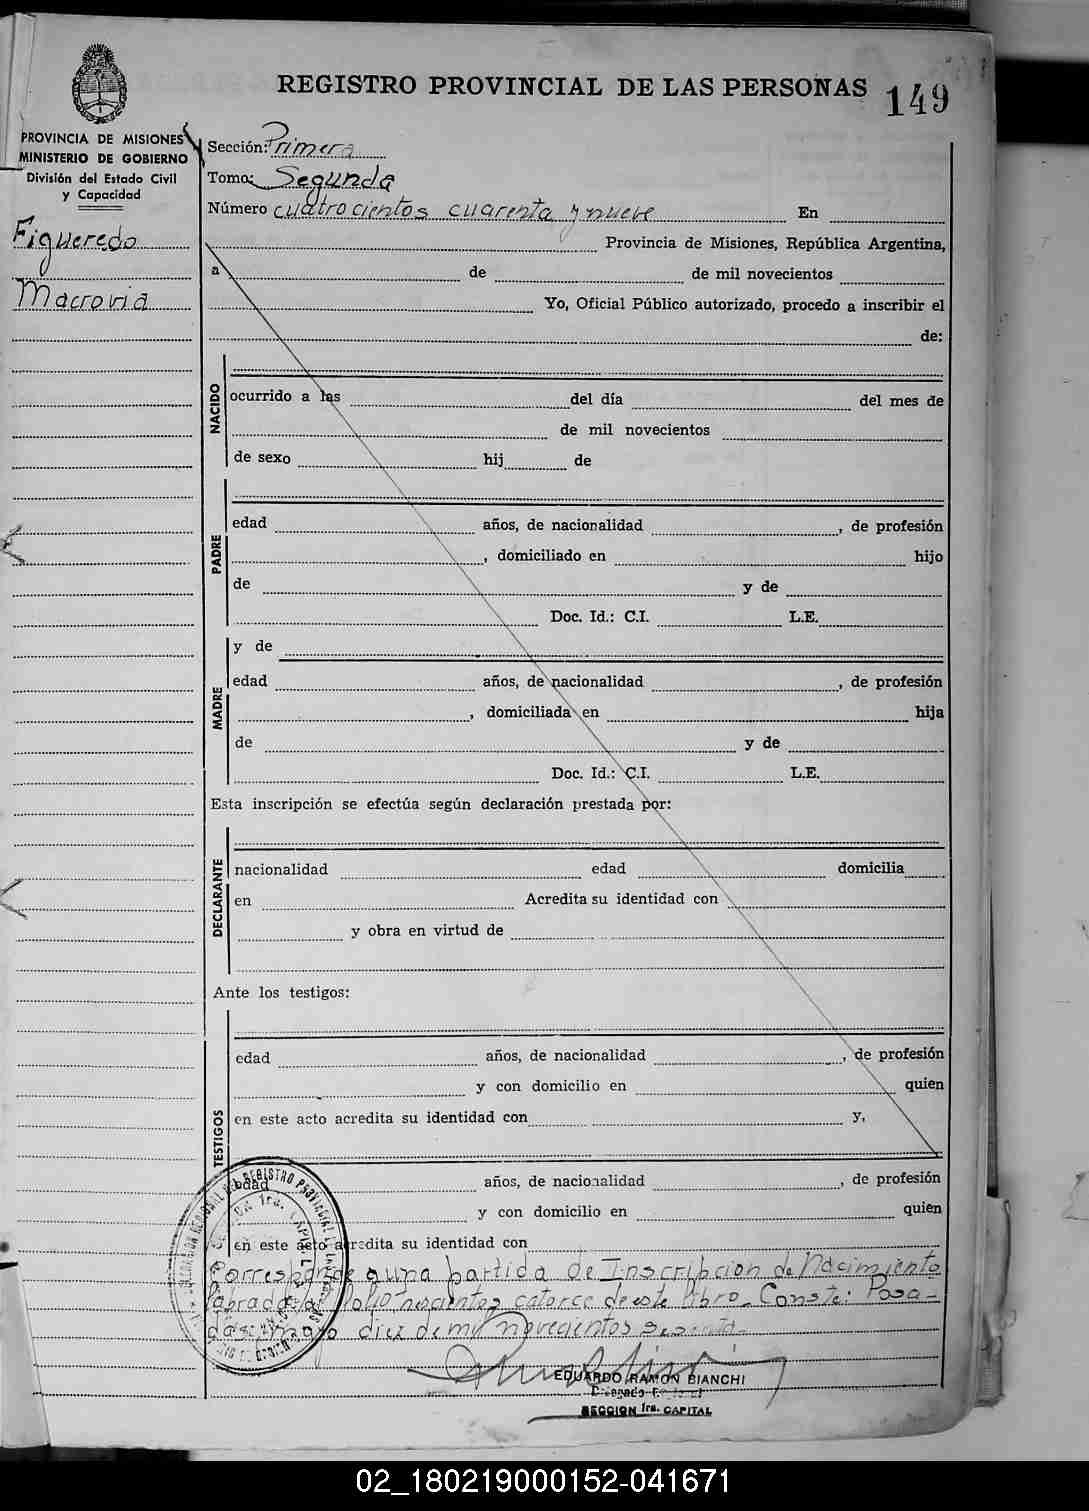 REGISTRO PROVINCIAL DE LAS PERSONAS
149
PROVINCIA DE MISIONES
MINISTERIO DE GOBIERNO
División del Estado Civil
y Capacidad
Figueredo
Macrovia
Sección: Primera
Tomo: Segunda
Número cuatrocientos cuarenta y nueve En
Provincia de Misiones, República Argentina,
a de de mil novecientos
Yo, Oficial Público autorizado, procedo a inscribir el
de:
NACIDO
ocurrido a las del día del mes de
de mil novecientos
de sexo hij de
PADRE
edad años, de nacionalidad , de profesión
, domiciliado en hijo
de y de
Doc. Id.: C.I. L.E.
MADRE
y de
edad años, de nacionalidad , de profesión
, domiciliada en hija
de y de
Doc. Id.: C.I. L.E.
Esta inscripción se efectúa según declaración prestada por:
DECLARANTE
nacionalidad edad domicilia
en Acredita su identidad con
y obra en virtud de
Ante los testigos:
TESTIGOS
edad años, de nacionalidad , de profesión
y con domicilio en quien
en este acto acredita su identidad con y,
edad años, de nacionalidad , de profesión
y con domicilio en quien
en este acto acredita su identidad con
Corresponde a una partida de Inscripcion de Nacimiento
labrada al folio catorce de este libro. Conste: Posa-
das, mayo diez de mil novecientos sesenta.
EDUARDO RAMON BIANCHI
Delegado
SECCION 1ra. CAPITAL
02_180219000152-041671